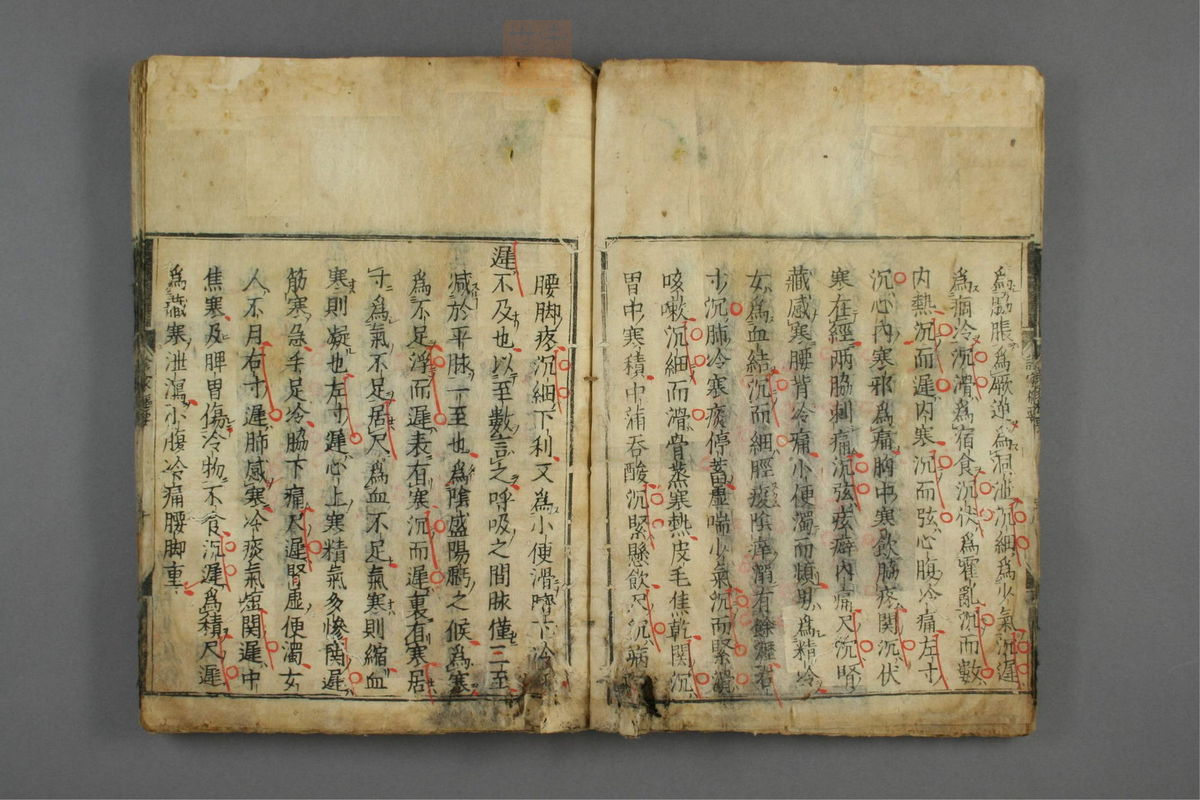 為脇脹為厥逆為洞泄沉細為少氣沉遲
為痼冷沉滑為宿食沉伏為霍亂沉而數
内熱沉而遲内寒沉而弦心腹冷痛左寸
沉心内寒邪為痛胸中寒飲脇疼関沉伏
寒在經兩脇刺痛沉弦痃癖内痛尺沉腎
藏感寒腰背冷痛小便濁而頻男為精冷
女為血結沉而細脛痠陰痒溺有餘瀝右
寸沉肺冷寒痰停蓄虚喘少氣沉而緊滑
咳嗽沉細而滑骨蒸寒熱皮毛焦乾関沉
胃中寒積中滿吞酸沉緊懸飲尺沉病
腰脚疼沉細下利又為小便滑臍下冷
遲不及也以至數言之呼吸之間脉僅三至
減於平脉一至也為陰盛陽虧之候為寒
為不足浮而遲表有寒沉而遲裏有寒居
寸為氣不足居尺為血不足氣寒則縮血
寒則凝也左寸遲心上寒精氣多惨関遲
筋寒急手足冷脇下痛尺遲腎虚便濁女
人不月右寸遲肺感寒冷痰氣短関遲中
焦寒及脾胃傷冷物不食沉遲為積尺遲
為藏寒泄瀉小腹冷痛腰脚重